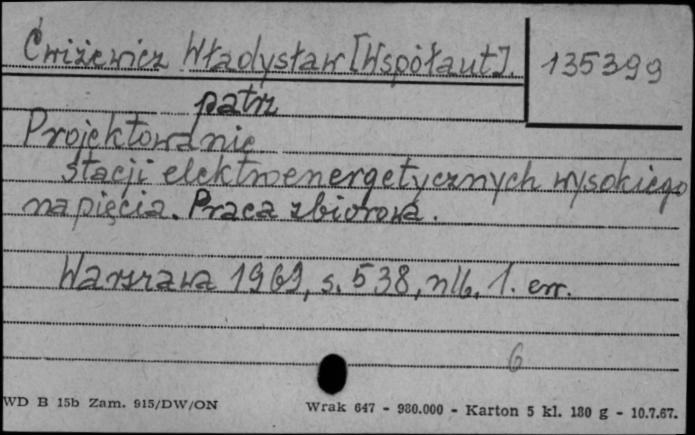 Ćwiżewicz Władysław [Współaut]. 135399
patrz
Projektowanie
stacji elektroenergetycznych wysokiego
napięcia. Praca zbiorowa.
Warszawa 1969, s. 538, nlb. 1. err.
6
WD B 15b Zam. 915/DW/ON Wrak 647 - 980.000 - Karton 5 kl. 180 g - 10.7.67.